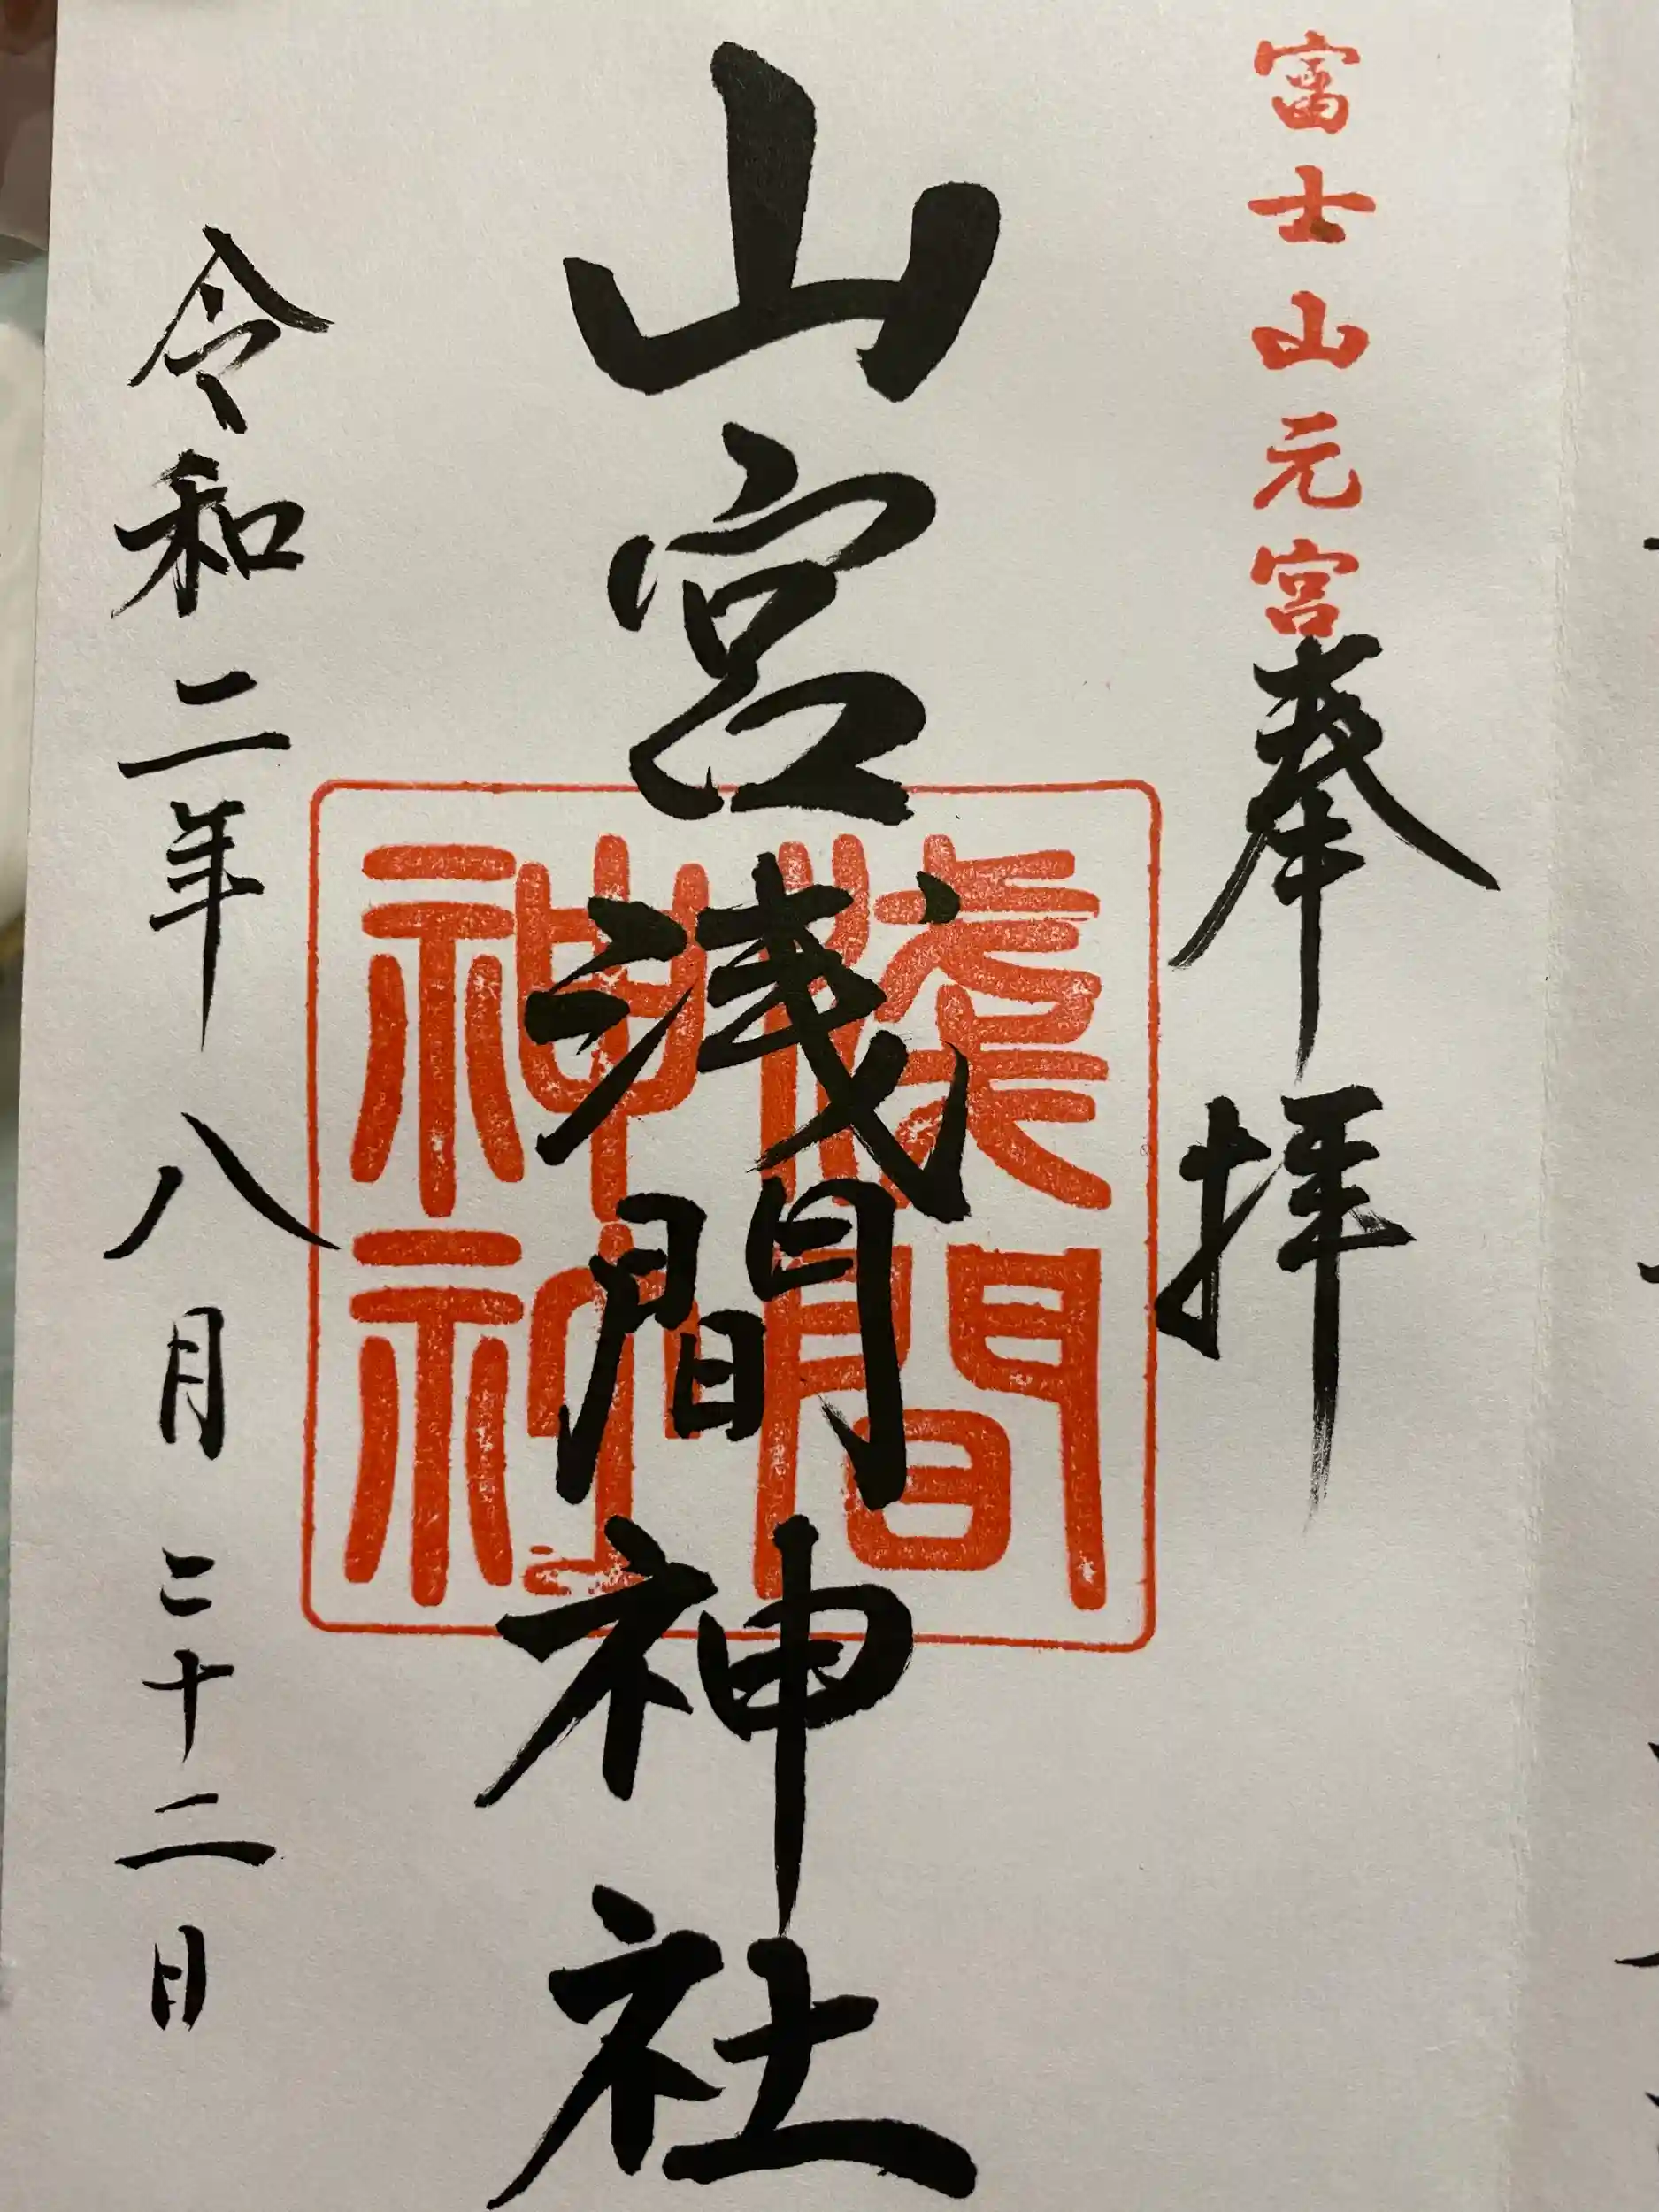 富士山元宮
奉拝
山宮浅間神社
淺間
神社
令和二年八月二十二日